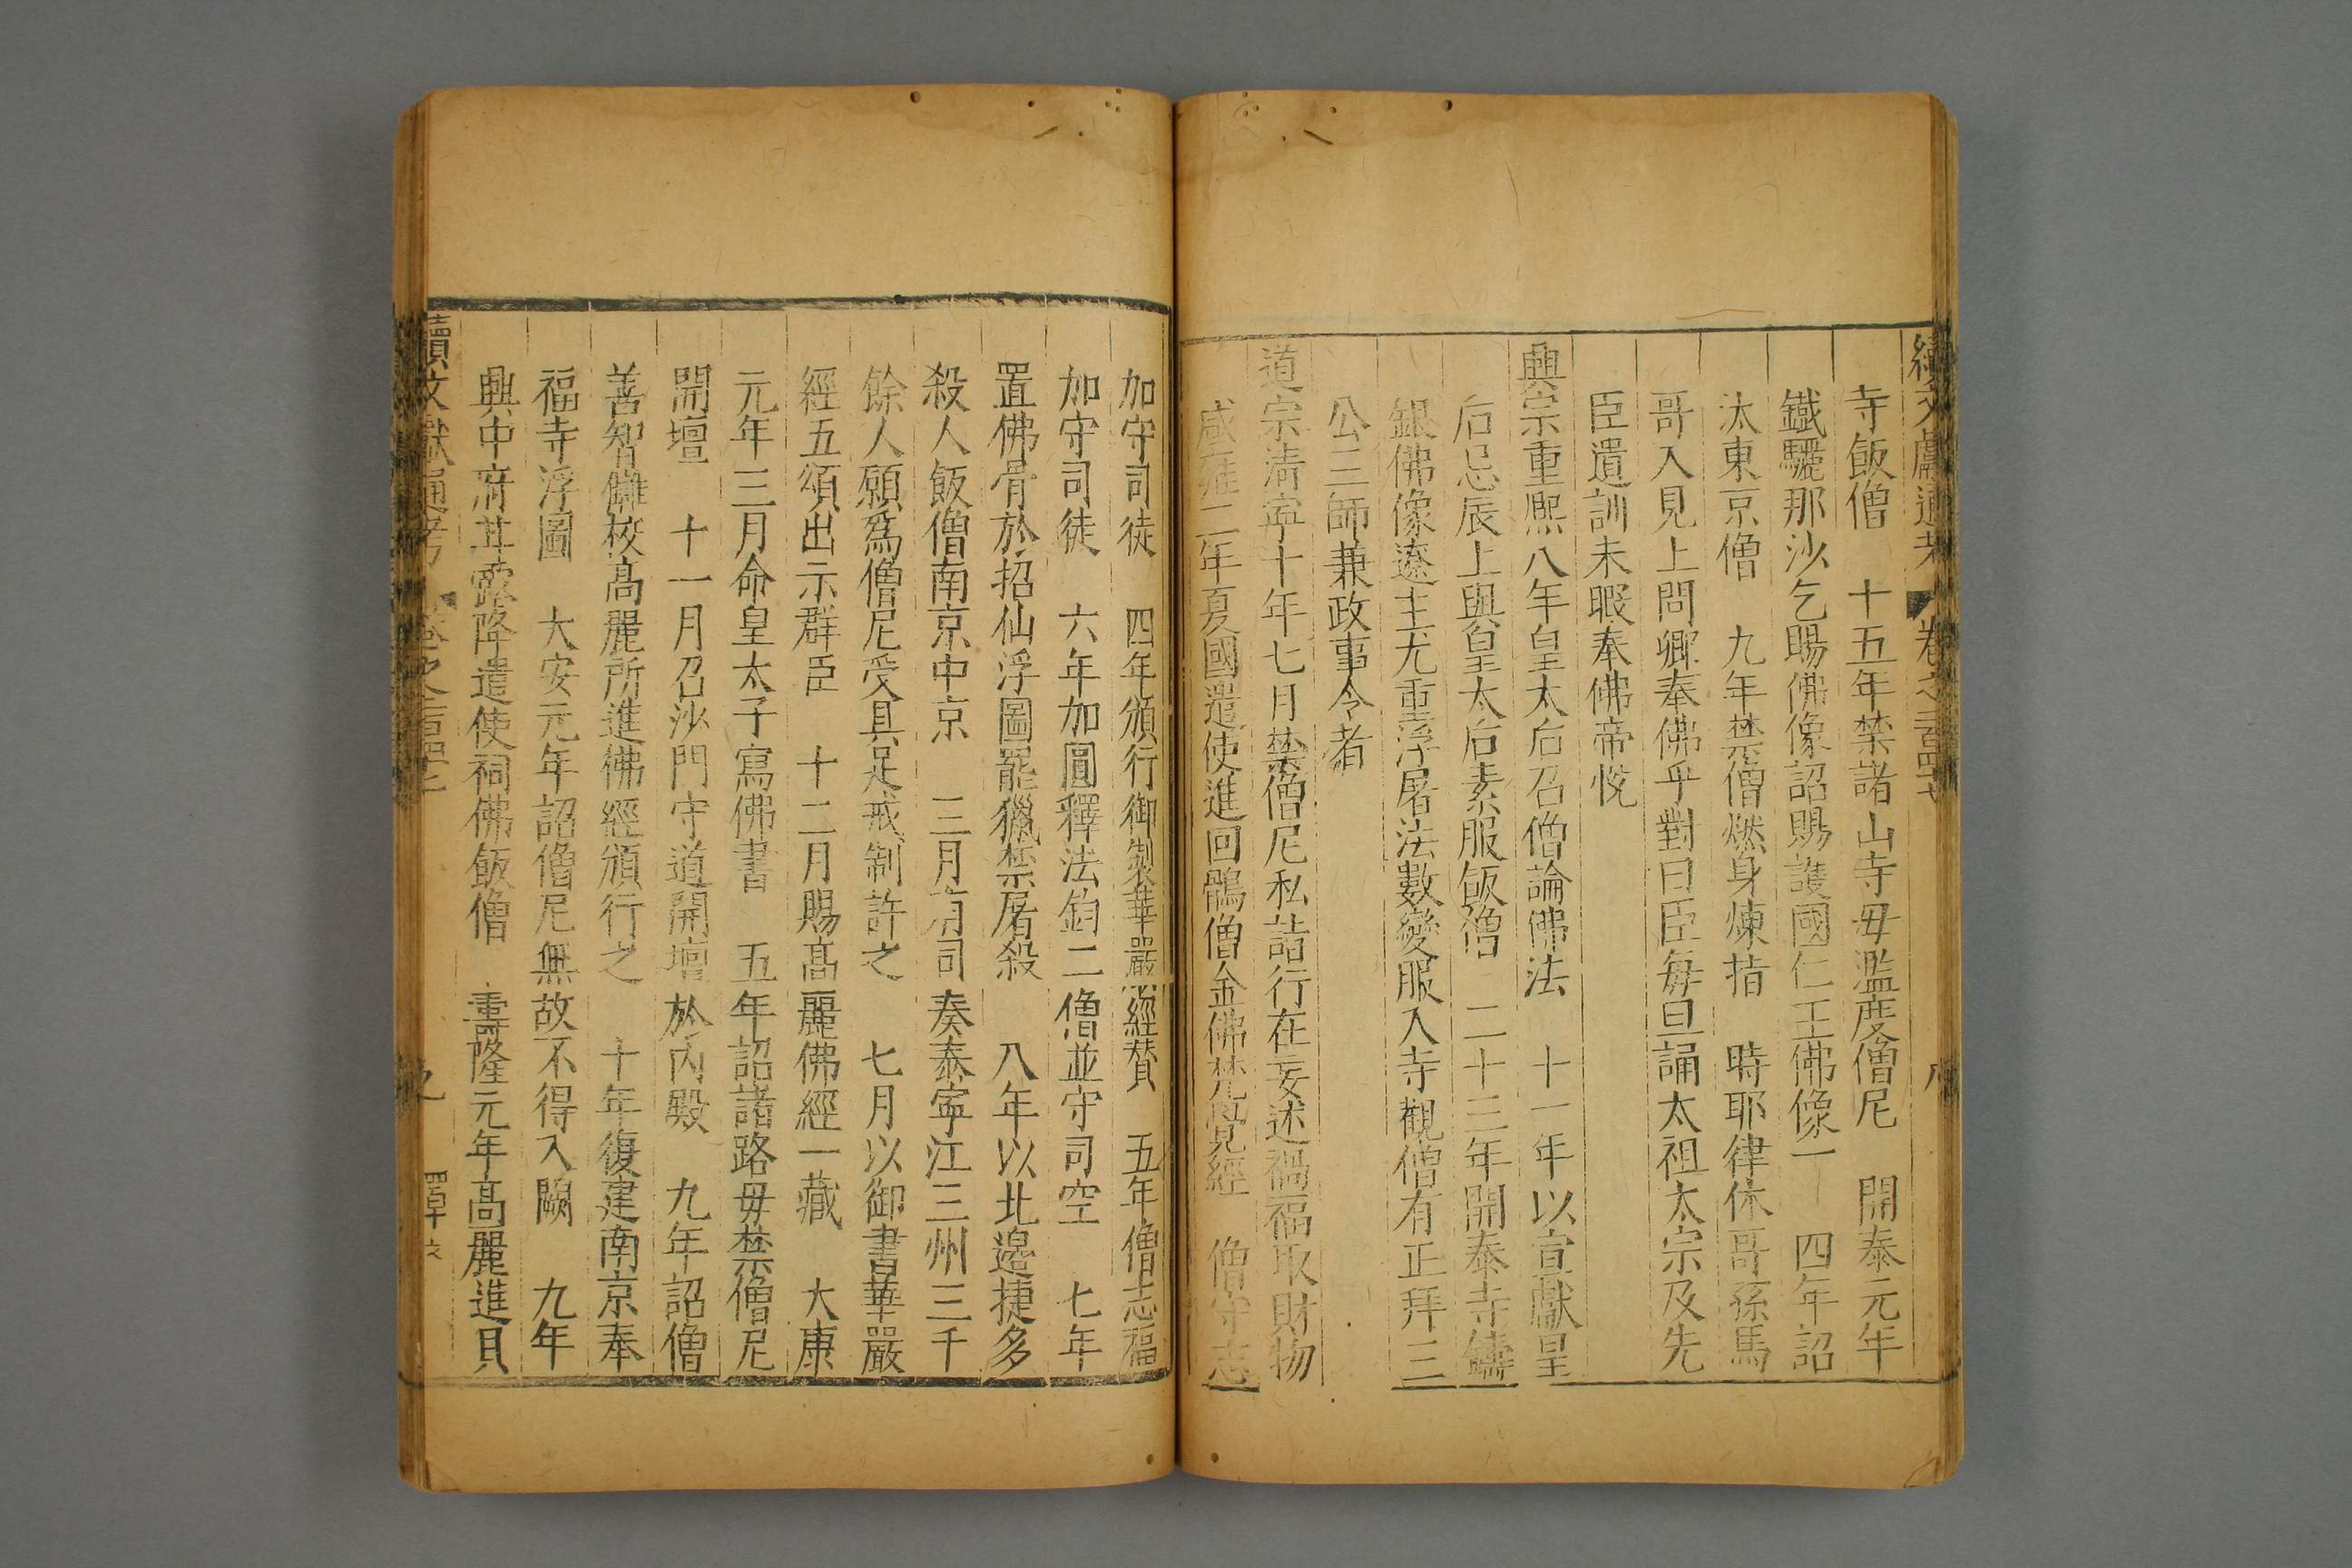 續文獻通考 卷之二百四十七
寺飯僧 十五年禁諸山寺毋濫度僧尼 開泰元年
鐵驪那沙乞賜佛像詔賜護國仁王佛像一 四年詔
汰東京僧 九年禁僧燃身煉指 時耶律休哥孫馬
哥入見上問卿奉佛乎對曰臣每旦誦太祖太宗及先
臣遺訓未暇奉佛帝悅
興宗重熙八年皇太后召僧論佛法 十一年以宣獻皇
后忌辰上與皇太后素服飯僧 二十三年開泰寺鑄
銀佛像遼主尤重浮屠法數變服入寺觀僧有正拜三
公三師兼政事令者
道宗清寧十年七月禁僧尼私詣行在妄述禍福取財物
咸雍二年夏國遣使進回鶻僧金佛梵覺經 僧守志
加守司徒 四年頒行御製華嚴經贊 五年僧志福
加守司徒 六年加圓釋法鈞二僧並守司空 七年
置佛骨於招仙浮圖罷獵禁屠殺 八年以北邊捷多
殺人飯僧南京中京 三月有司奏泰寧江三州三千
餘人願爲僧尼受具足戒制許之 七月以御書華嚴
經五頌出示群臣 十二月賜高麗佛經一藏 大康
元年三月命皇太子寫佛書 五年詔諸路毋禁僧尼
開壇 十一月召沙門守道開壇於內殿 九年詔僧
善智讎校高麗所進佛經頒行之 十年復建南京奉
福寺浮圖 大安元年詔僧尼無故不得入闕 九年
興中府甘露降遣使祠佛飯僧 壽隆元年高麗進貝
續文獻通考 卷之二百四十七